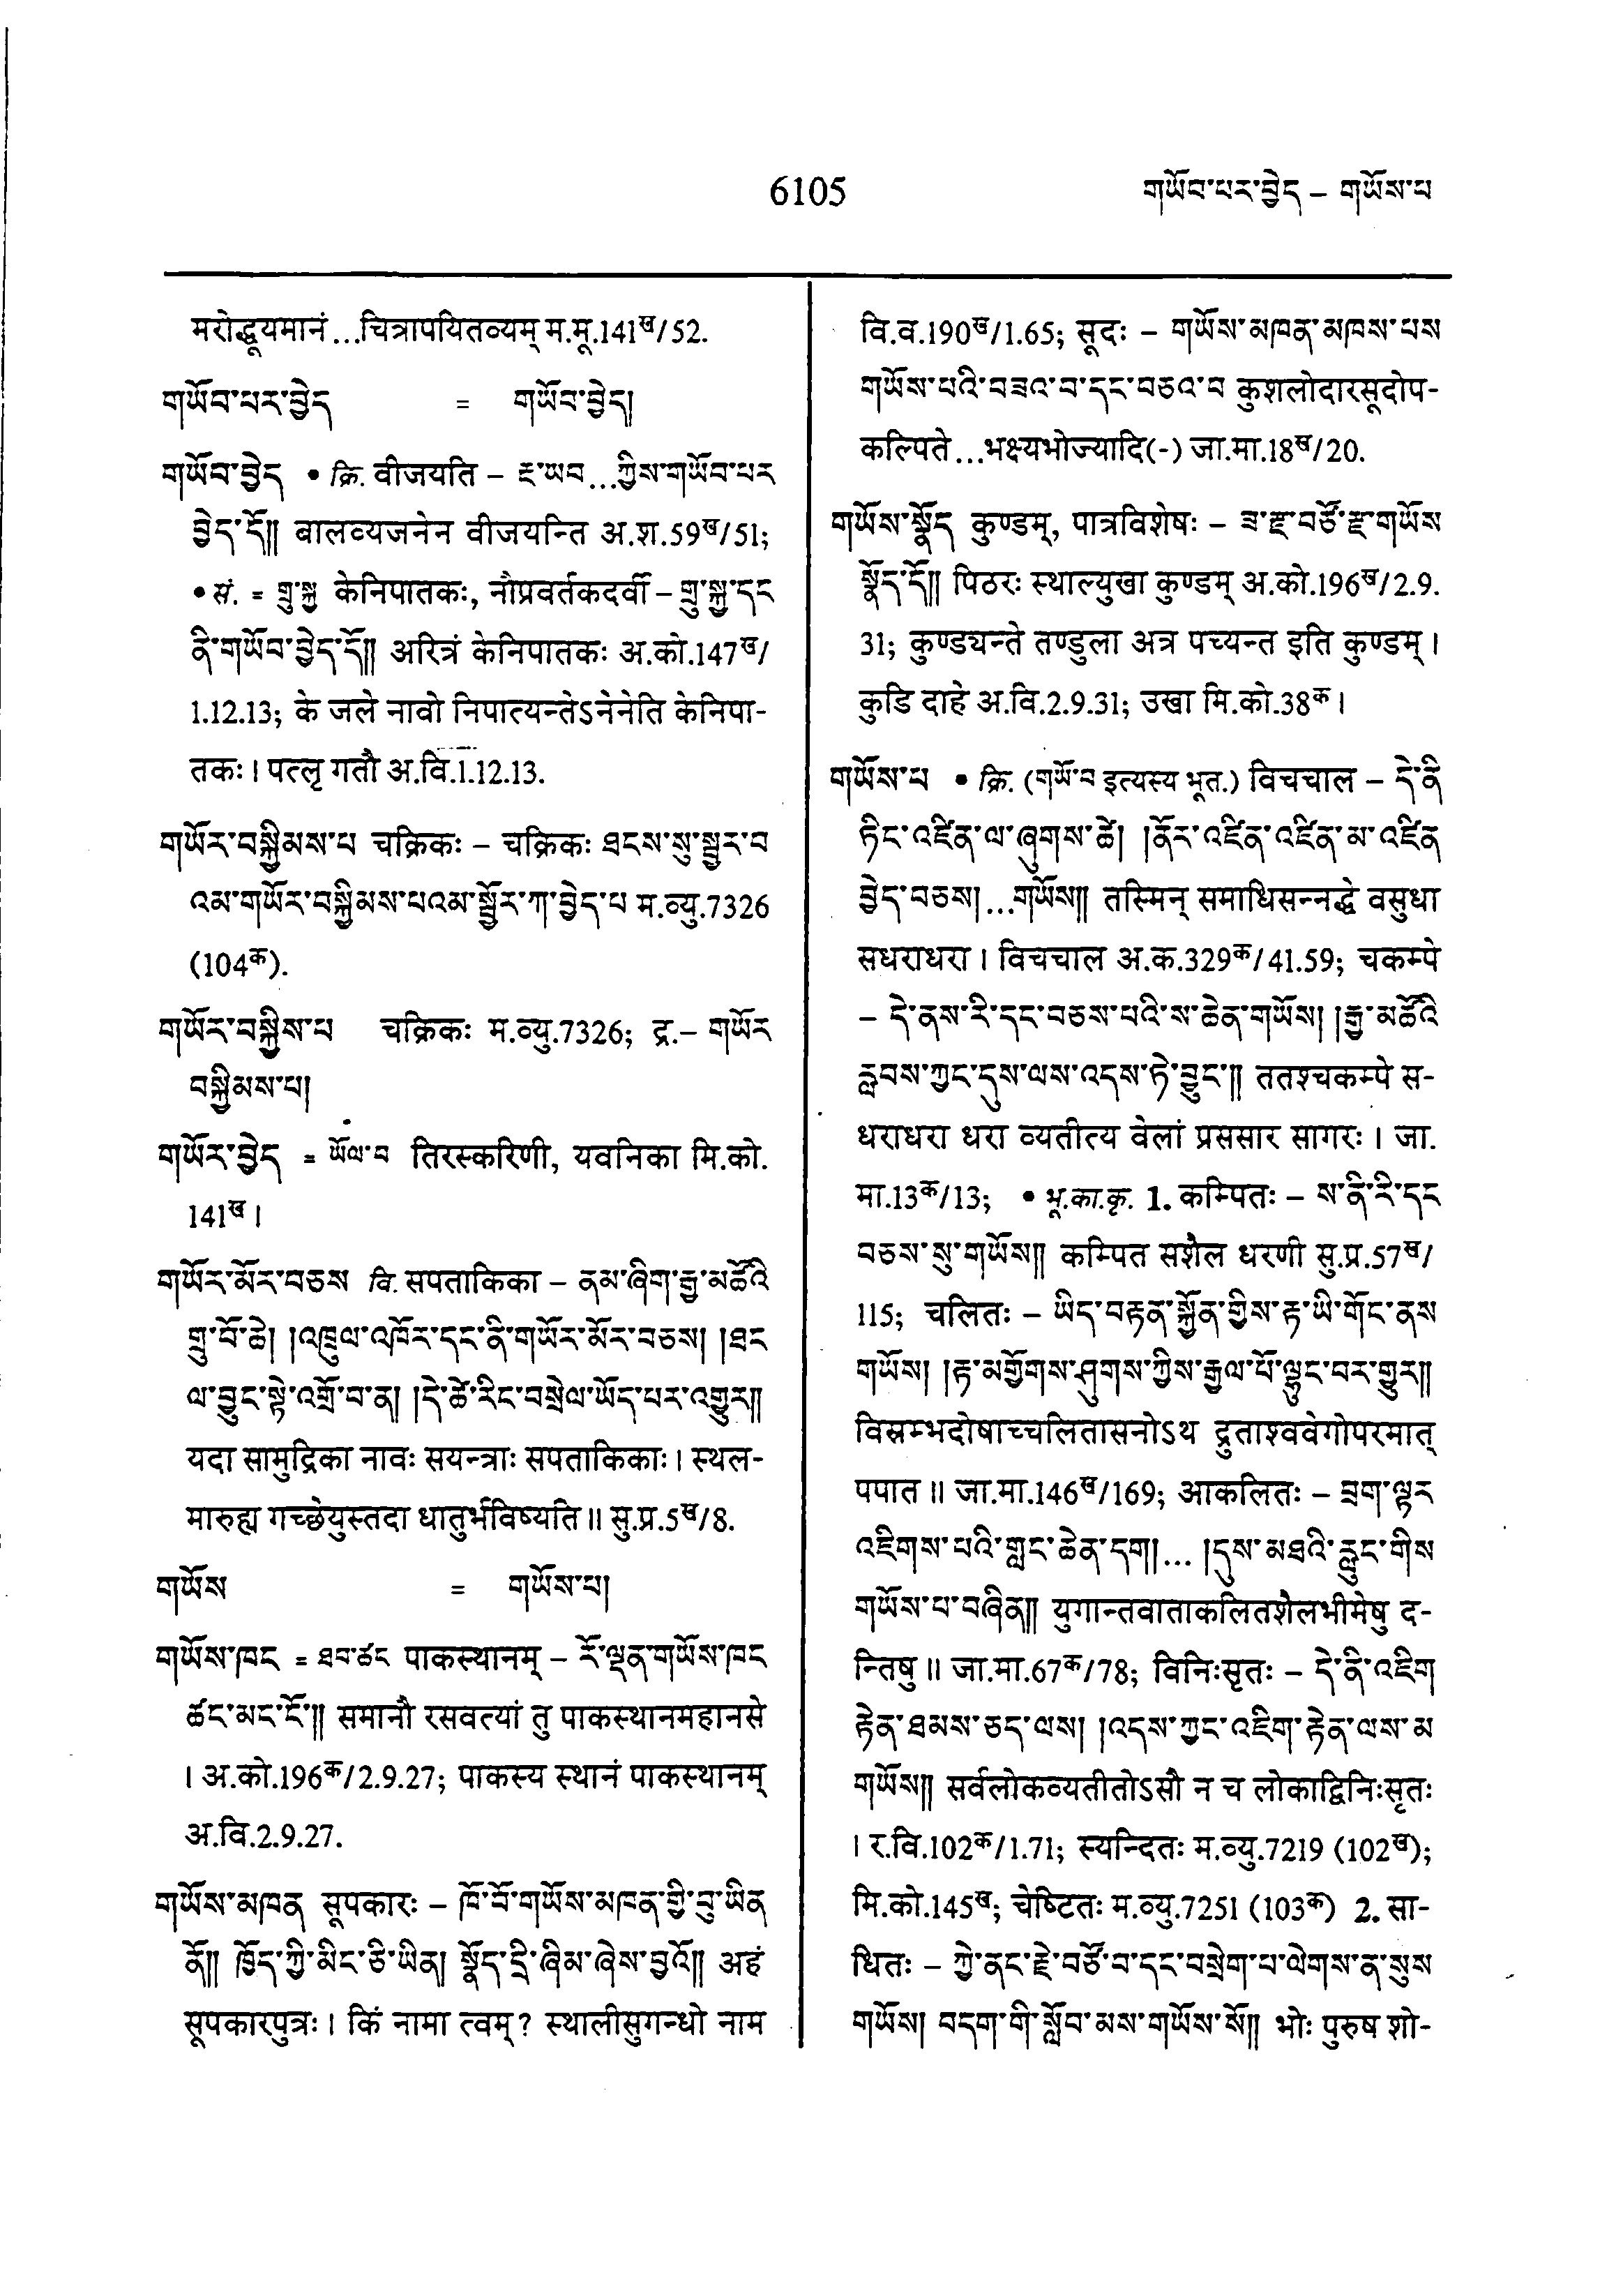 6105
གཡོབ་པར་བྱེད – གཡོས་པ
मरोद्धूयमानं...चित्रापयितव्यम् म.मू.141ख/52.
གཡོབ་པར་བྱེད = གཡོབ་བྱེད།
གཡོབ་བྱེད • क्रि. वीजयति – རྔ་ཡབ...ཀྱིས་གཡོབ་པར
བྱེད་དོ།། बालव्यजनेन वीजयन्ति अ.श.59ख/51;
• सं. = གྲུ་སྐྱ केनिपातकः, नौप्रवर्तकदर्वी – གྲུ་སྐྱ་དང
ནི་གཡོབ་བྱེད་དོ།། अरित्रं केनिपातकः अ.को.147ख/
1.12.13; के जले नावो निपात्यन्तेऽनेनेति केनिपा-
तकः । पत्लृ गतौ अ.वि.1.12.13.
གཡོར་བསྐྱིམས་པ चक्रिकः – चक्रिकः ཐངས་སུ་སྦྱར་བ
འམ་གཡོར་བསྐྱིམས་པའམ་སྦྱོར་ཀ་བྱེད་པ म.व्यु.7326
(104क).
གཡོར་བསྐྱིས་པ चक्रिकः म.व्यु.7326; द्र.– གཡོར
བསྐྱིམས་པ།
གཡོར་བྱེད = ཡོལ་བ तिरस्करिणी, यवनिका मि.को.
141ख ।
གཡོར་མོར་བཅས वि. सपताकिका – ནམ་ཞིག་རྒྱ་མཚོའི
གྲུ་བོ་ཆེ། །འཁྲུལ་འཁོར་དང་ནི་གཡོར་མོར་བཅས། །ཐང
ལ་བྱུང་སྟེ་འགྲོ་བ་ན། །དེ་ཚེ་རིང་བསྲེལ་ཡོད་པར་འགྱུར།།
यदा सामुद्रिका नावः सयन्त्राः सपताकिकाः । स्थल-
मारुह्य गच्छेयुस्तदा धातुर्भविष्यति ॥ सु.प्र.5ख/8.
གཡོས = གཡོས་པ།
གཡོས་ཁང = ཐབ་ཚང पाकस्थानम् – རོ་ལྡན་གཡོས་ཁང
ཚང་མང་ངོ་།། समानौ रसवत्यां तु पाकस्थानमहानसे
। अ.को.196क/2.9.27; पाकस्य स्थानं पाकस्थानम्
अ.वि.2.9.27.
གཡོས་མཁན सूपकारः – ཁོ་བོ་གཡོས་མཁན་གྱི་བུ་ཡིན
ནོ།། ཁྱོད་ཀྱི་མིང་ཅི་ཡིན། སྣོད་དྲི་ཞིམ་ཞེས་བྱའོ།། अहं
सूपकारपुत्रः । किं नामा त्वम्? स्थालीसुगन्धो नाम
वि.व.190ख/1.65; सूदः – གཡོས་མཁན་མཁས་པས
གཡོས་པའི་བཟའ་བ་དང་བཅའ་བ कुशलोदारसूदोप-
कल्पिते...भक्ष्यभोज्यादि(-) जा.मा.18ख/20.
གཡོས་སྣོད कुण्डम्, पात्रविशेषः – ཟ་རྫ་བཙོ་རྫ་གཡོས
སྣོད་དོ།། पिठरः स्थाल्युखा कुण्डम् अ.को.196ख/2.9.
31; कुण्ड्यन्ते तण्डुला अत्र पच्यन्त इति कुण्डम् ।
कुडि दाहे अ.वि.2.9.31; उखा मि.को.38क ।
གཡོས་པ • क्रि. (གཡོ་བ इत्यस्य भूत.) विचचाल – དེ་ནི
ཏིང་འཛིན་ལ་ཞུགས་ཚེ། །ནོར་འཛིན་འཛིན་མ་འཛིན
བྱེད་བཅས།...གཡོས།། तस्मिन् समाधिसन्नद्धे वसुधा
सधराधरा । विचचाल अ.क.329क/41.59; चकम्पे
– དེ་ནས་རི་དང་བཅས་པའི་ས་ཆེན་གཡོས། །རྒྱ་མཚོའི
རླབས་ཀྱང་དུས་ལས་འདས་ཏེ་བྱུང་།། ततश्चकम्पे स-
धराधरा धरा व्यतीत्य वेलां प्रससार सागरः । जा.
मा.13क/13; • भू.का.कृ. 1. कम्पितः – ས་ནི་རི་དང
བཅས་སུ་གཡོས།། कम्पित सशैल धरणी सु.प्र.57ख/
115; चलितः – ཡིད་བརྟན་སྐྱོན་གྱིས་རྟ་ཡི་གོང་ནས
གཡོས། །རྟ་མགྱོགས་ཤུགས་ཀྱིས་རྒྱལ་པོ་ལྷུང་བར་གྱུར།།
विस्रम्भदोषाच्चलितासनोऽथ द्रुताश्ववेगोपरमात्
पपात ॥ जा.मा.146ख/169; आकलितः – བྲག་ལྟར
འཇིགས་པའི་གླང་ཆེན་དག།... །དུས་མཐའི་རླུང་གིས
གཡོས་པ་བཞིན།། युगान्तवाताकलितशैलभीमेषु द-
न्तिषु ॥ जा.मा.67क/78; विनिःसृतः – དེ་ནི་འཇིག
རྟེན་ཐམས་ཅད་ལས། །འདས་ཀྱང་འཇིག་རྟེན་ལས་མ
གཡོས།། सर्वलोकव्यतीतोऽसौ न च लोकाद्विनिःसृतः
। र.वि.102क/1.71; स्यन्दितः म.व्यु.7219 (102ख);
मि.को.145ख; चेष्टितः म.व्यु.7251 (103क) 2. सा-
धितः – ཀྱེ་ནང་རྗེ་བཙོ་བ་དང་བསྲེག་པ་ལེགས་ན་སུས
གཡོས། བདག་གི་སློབ་མས་གཡོས་སོ།། भोः पुरुष शो-